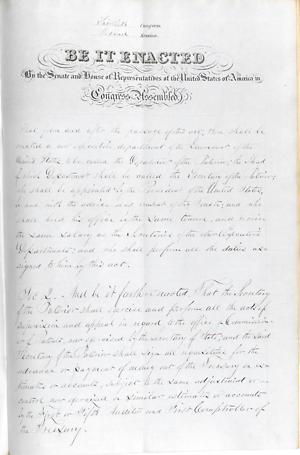 Thirtieth Congress
Second Session
BE IT ENACTED
By the Senate and House of Representatives of the United States of America in
Congress Assembled,
That from and after the passage of this act, there shall be
created a new executive department of the Government of the
United States, to be called the Department of the Interior; the Head
of which Department shall be called the Secretary of the Interior,
who shall be appointed by the President of the United States,
by and with the advice and consent of the Senate, and who
shall hold his office by the same tenure, and receive
the same salary as the Secretaries of the other Executive
Departments, and who shall perform all the duties as-
signed to him by this act.
Sec 2. And be it further enacted, That the Secretary
of the Interior shall exercise and perform all the acts of
supervision and appeal in regard to the office of Commissioner
of Patents, now exercised by the Secretary of State; and the said
Secretary of the Interior shall sign all requisitions for the
advance or payment of money out of the Treasury on es-
timates or accounts, subject to the same adjustment or
control now exercised on similar estimates or accounts
by the First or Fifth Auditor and First Comptroller of
the Treasury.